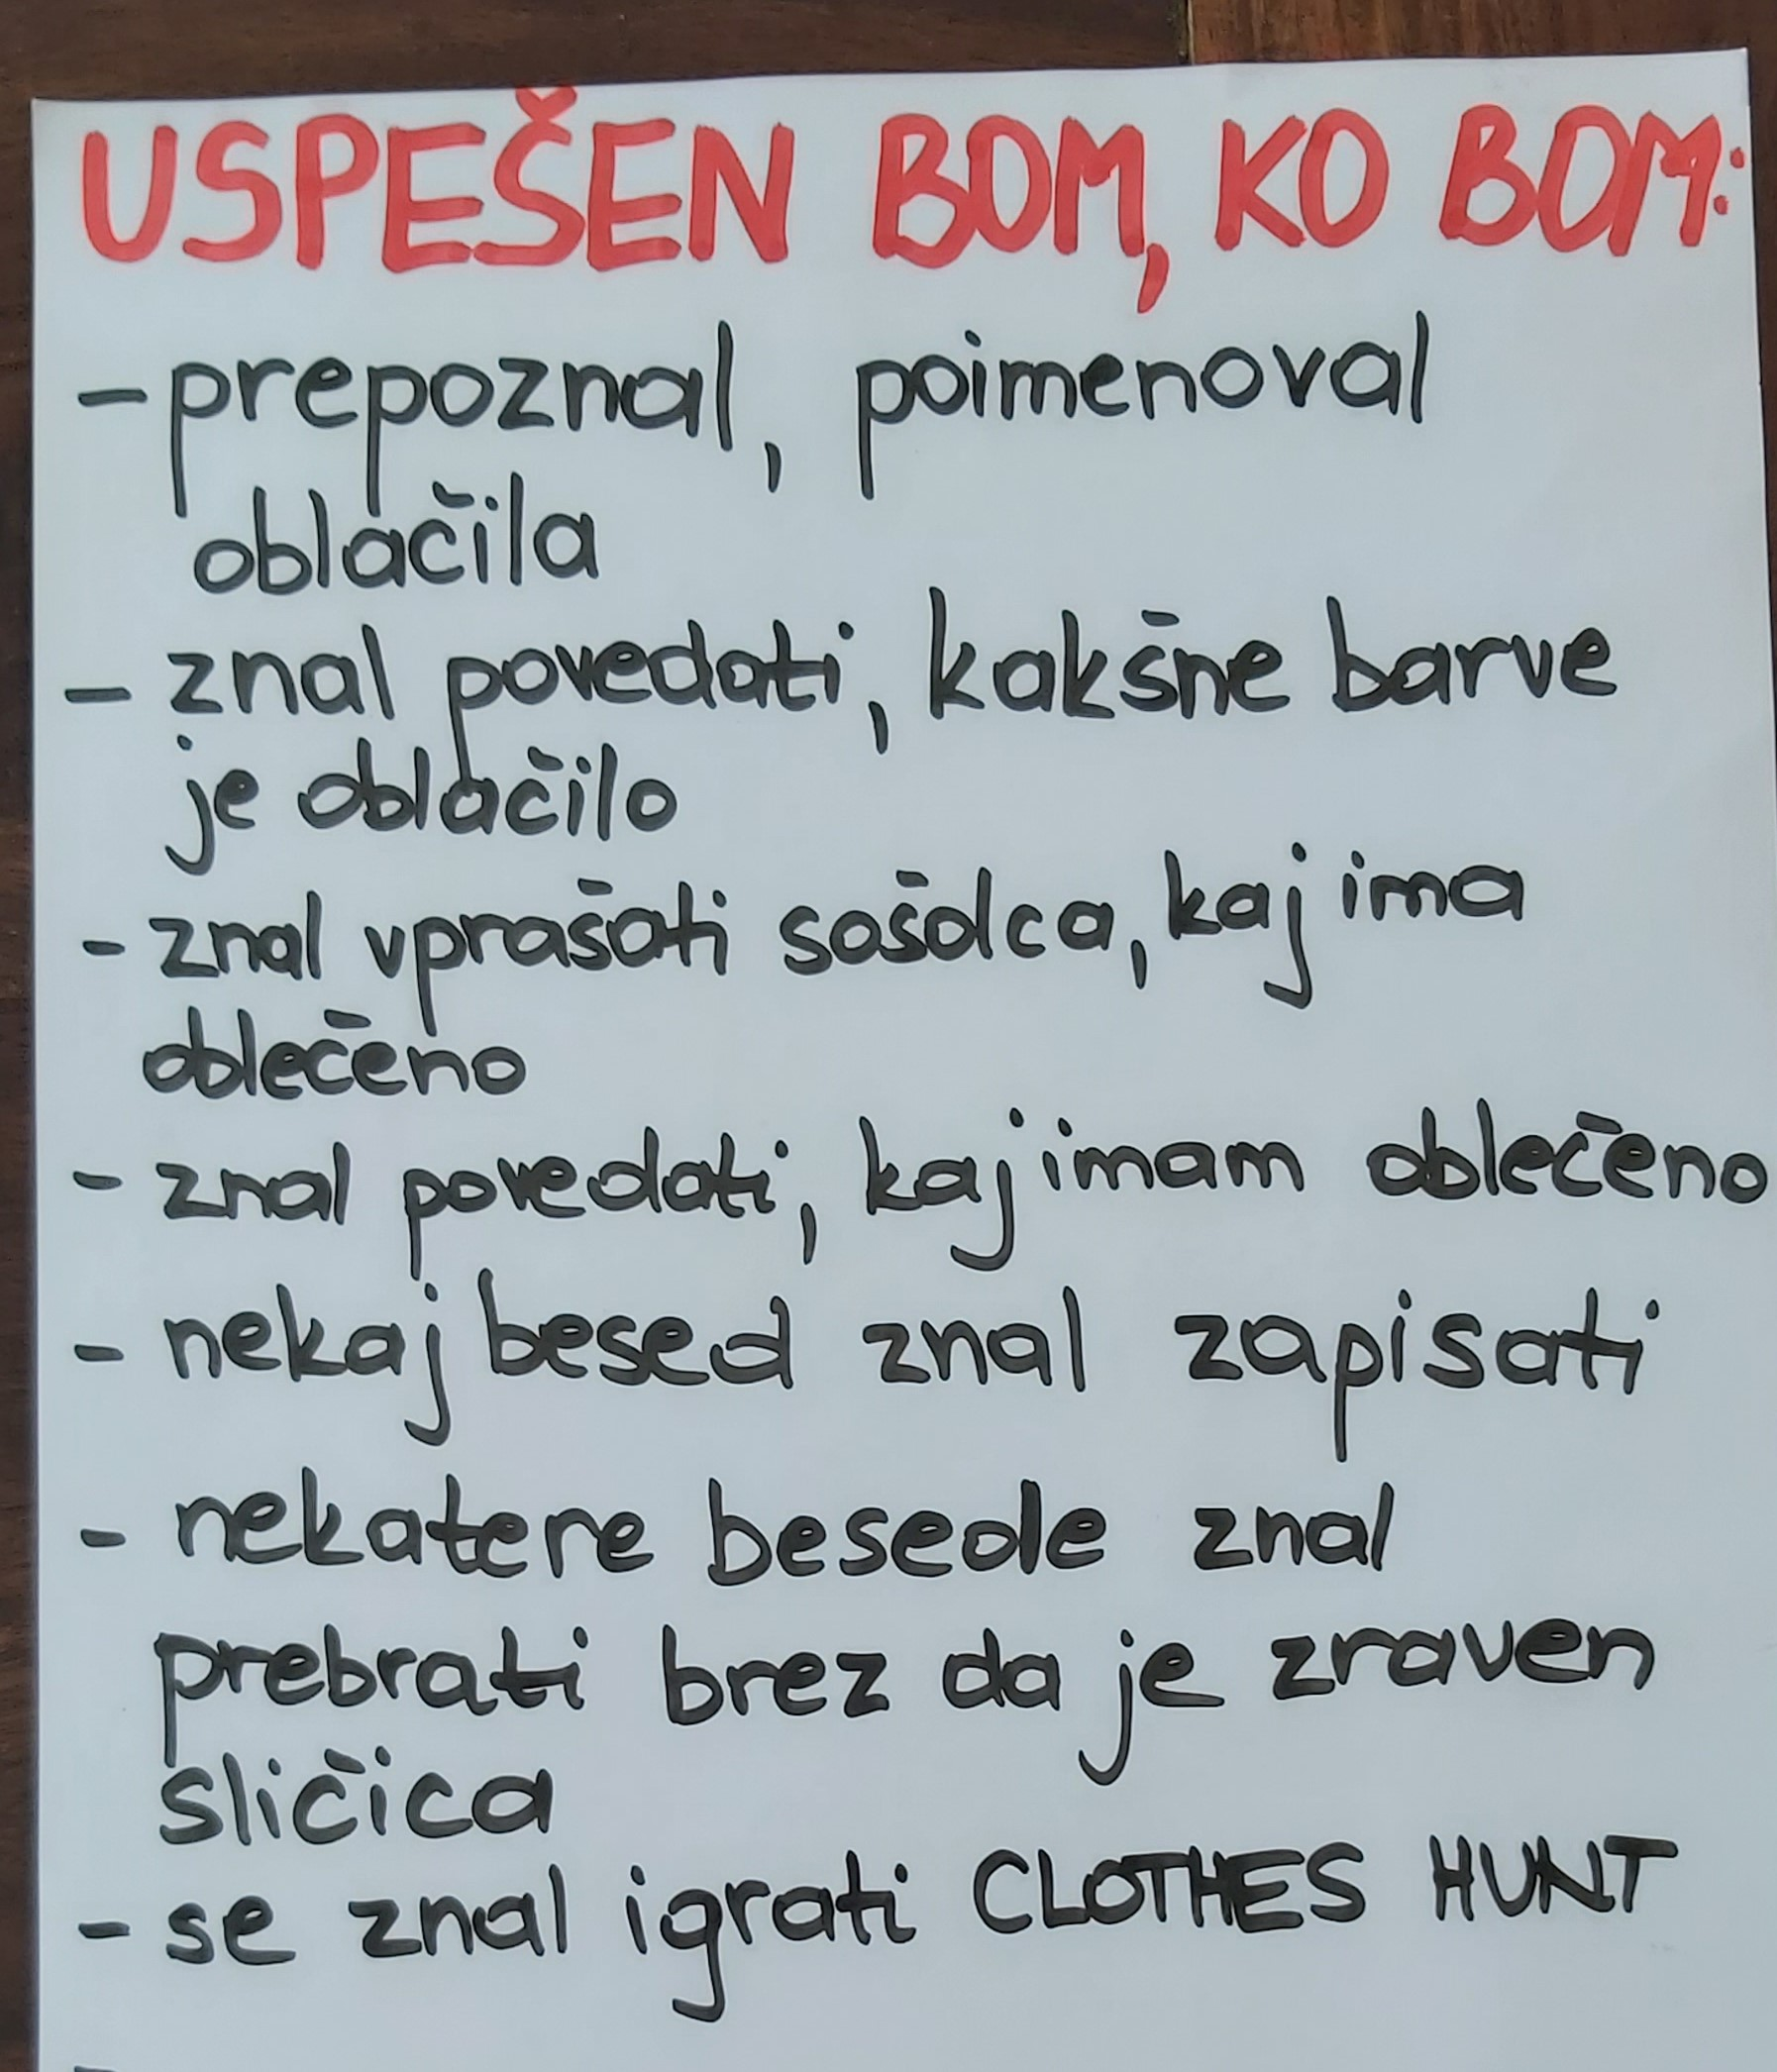 USPEŠEN BOM, KO BOM:
- prepoznal, poimenoval
oblačila
- znal povedati, kakšne barve
je oblačilo
- znal vprašati sošolca, kaj ima
oblečeno
- znal povedati, kaj imam oblečeno
- nekaj besed znal zapisati
- nekatere besede znal
prebrati brez da je zraven
sličica
- se znal igrati CLOTHES HUNT